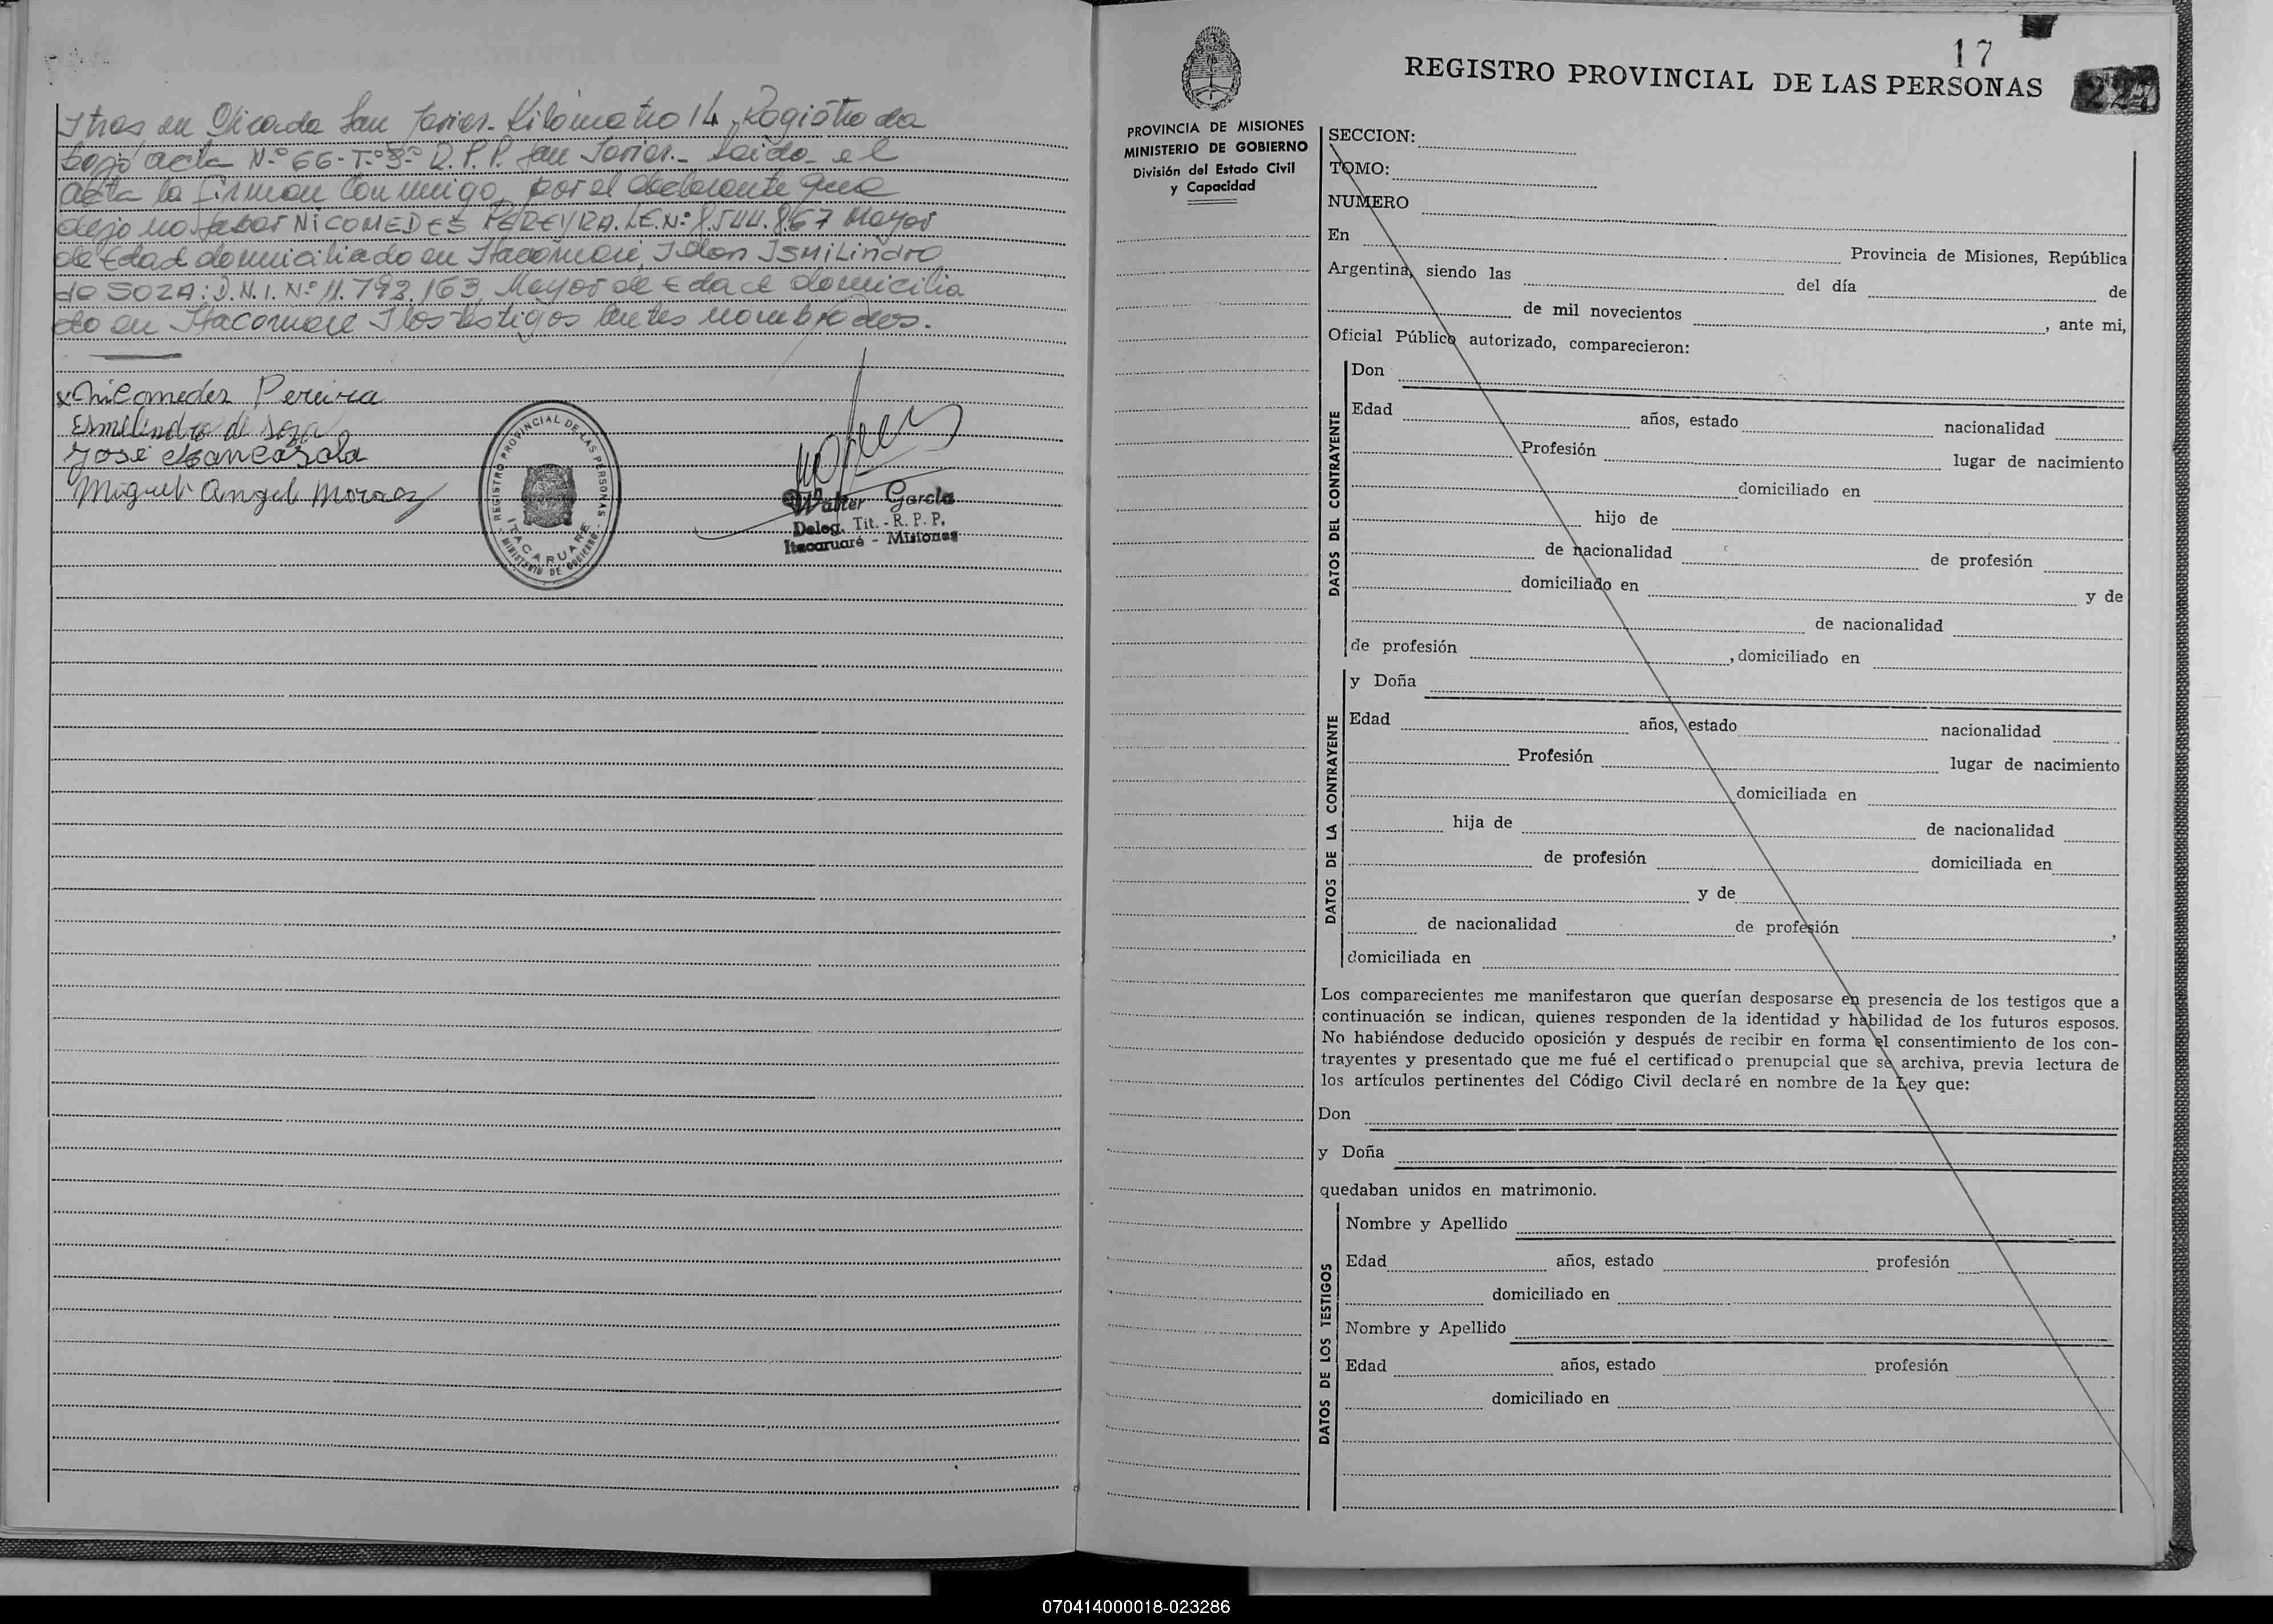 Itres en Picada San Javier. Kilometro 14, Registrada
bajo acta N.º 66-T.º 3º R.P.P. San Javier.- Leido el
acta la firman conmigo, por el declarante que
dejo no saber NiCOMEDES PEREYRA. L.E.N.º 8.544.867 Mayor
de Edad domiciliado en Itacaruaré, I Don ISMiLindro
de SOZA: D.N.I. N.º 11.793.163, Mayor de Edad domicilia
do en Itacaruaré I los testigos antes nombrados.
x Nicomedez Pereira
Esmelindro de Soza
José
Miguel Angel
REGISTRO PROVINCIAL DE LAS PERSONAS
ITACARUARE
MINISTERIO DE GOBIERNO
Walter García
Deleg. Tit. - R. P. P.
Itacaruaré - Misiones
17
REGISTRO PROVINCIAL DE LAS PERSONAS
227
PROVINCIA DE MISIONES
MINISTERIO DE GOBIERNO
División del Estado Civil
y Capacidad
SECCION:
TOMO:
NUMERO
En Provincia de Misiones, República
Argentina, siendo las del día de
de mil novecientos , ante mi,
Oficial Público autorizado, comparecieron:
DATOS DEL CONTRAYENTE
Don
Edad años, estado nacionalidad
Profesión lugar de nacimiento
domiciliado en
hijo de
de nacionalidad de profesión
domiciliado en y de
de nacionalidad
de profesión , domiciliado en
DATOS DE LA CONTRAYENTE
y Doña
Edad años, estado nacionalidad
Profesión lugar de nacimiento
domiciliada en
hija de de nacionalidad
de profesión domiciliada en
y de
de nacionalidad de profesión ,
domiciliada en
Los comparecientes me manifestaron que querían desposarse en presencia de los testigos que a
continuación se indican, quienes responden de la identidad y habilidad de los futuros esposos.
No habiéndose deducido oposición y después de recibir en forma el consentimiento de los con-
trayentes y presentado que me fué el certificado prenupcial que se archiva, previa lectura de
los artículos pertinentes del Código Civil declaré en nombre de la Ley que:
Don
y Doña
quedaban unidos en matrimonio.
DATOS DE LOS TESTIGOS
Nombre y Apellido
Edad años, estado profesión
domiciliado en
Nombre y Apellido
Edad años, estado profesión
domiciliado en
070414000018-023286